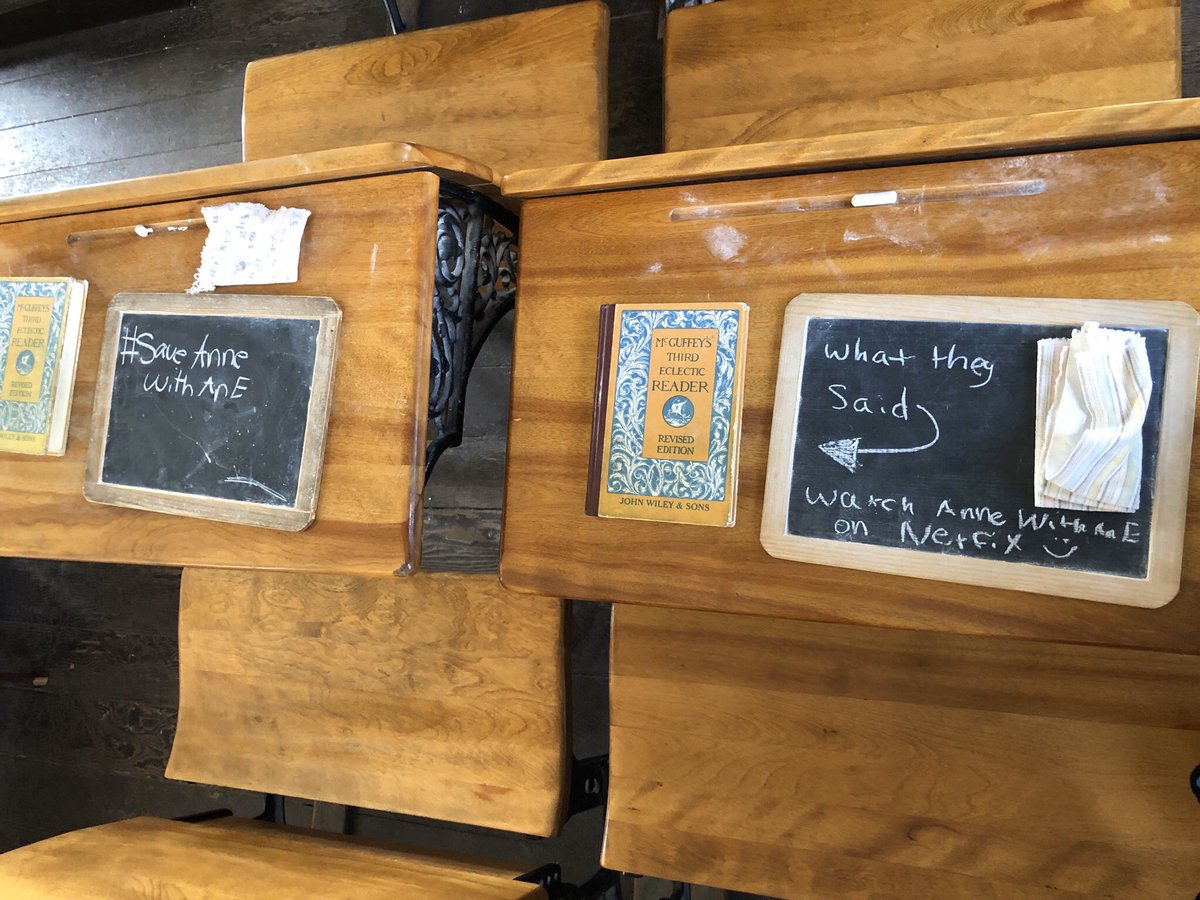 McGUFFEY'S
THIRD
ECLECTIC
READER
REVISED
EDITION
WILEY & SONS
#Save Anne
With An E
McGUFFEY'S
THIRD
ECLECTIC
READER
REVISED
EDITION
JOHN WILEY & SONS
What they
Said
Watch Anne With An E
on Netflix